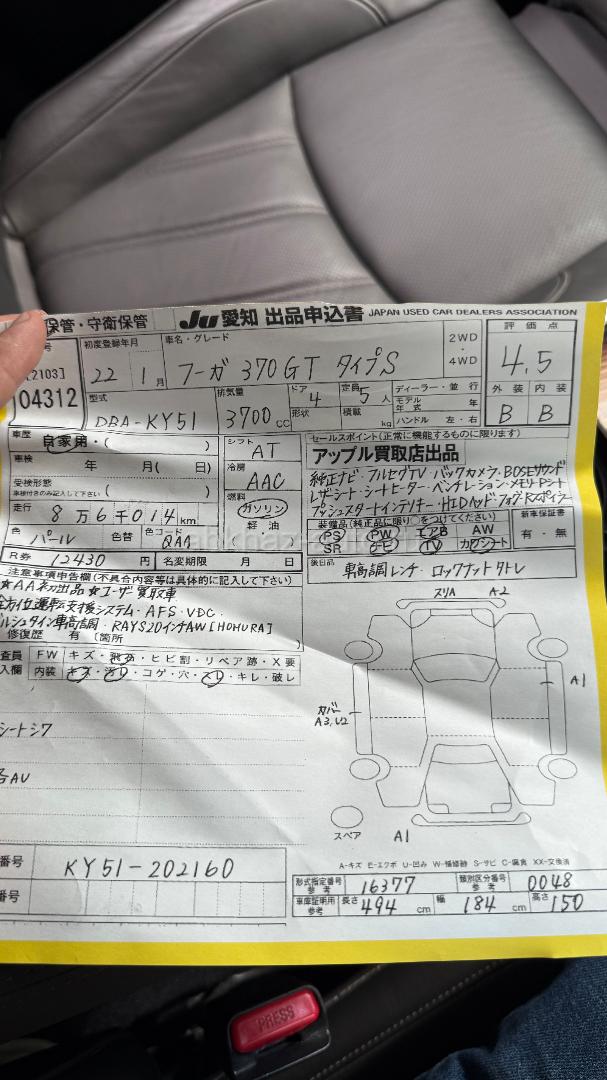 保管・守衛保管
JU 愛知 出品申込書 JAPAN USED CAR DEALERS ASSOCIATION
号 初度登録年月 車名・グレード 2WD・4WD 評価点
2103] 22年 1月 フーガ 370GT タイプS 4.5
04312 型式 排気量 ドア 定員 ディーラー・並行 外装 内装
DBA-KY51 3700cc 4 5人 形状 積載 kg モデル年式 年 ハンドル 左・右 B B
車歴 自家用・( ) シフト AT セールスポイント(正常に機能するものに限ります)
車検 年 月( 日) 冷房 AAC アップル買取店出品
受検形態 車検付きのみ記入して下さい ( ) 燃料 ガソリン・軽油
純正ナビ・フルセグTV・バックカメラ・BOSEサウンド
レザーシート・シートヒーター・ベンチレーション・メモリPシート
プッシュスタートインテリキー・HIDヘッド フォグ Rスポイラー
走行 8万6千014km
装備品(純正品に限り○をつけてください) 新車保証書
PS PW エアB AW 有・無
SR ナビ TV カワシート
色 パール 色替 色コード QAA
R券 12430円 名変期限 月 日
後日品 車高調レンチ・ロックナット
注意事項申告欄(不具合内容等は具体的に記入して下さい)
★AA初出品 ★ユーザー買取車
全方位運転支援システム・AFS・VDC
ルシュタイン車高調・RAYS20インチAW[HOMURA]
修復歴 有 [箇所
査員 FW キズ・飛石・ヒビ割・リペア跡・X要
入欄 内装 キズ・汚れ・コゲ・穴・スレ・キレ・破レ
スリA A2
A1
カバー
A3,U2
シートシワ
各AU
スペア A1
A-キズ E-エクボ U-凹み W-補修跡 S-サビ C-腐食 XX-交換済
番号 KY51-202160
番号
形式指定番号 参考 16377 類別区分番号 参考 0048
車庫証明用 参考 長さ 494cm 幅 184cm 高さ 150
PRESS